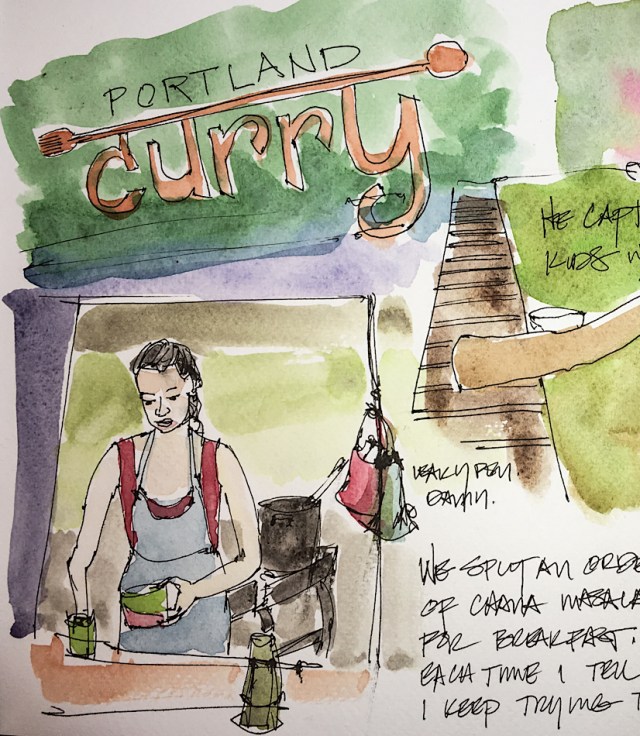 PORTLAND
curry
HE CAPT
KIDS
LEAKY PEN
WE SPLIT AN ORDE
OF CHANA MASALA
FOR BREAKFAST.
EACH TIME I TELL
I KEEP TRYING T